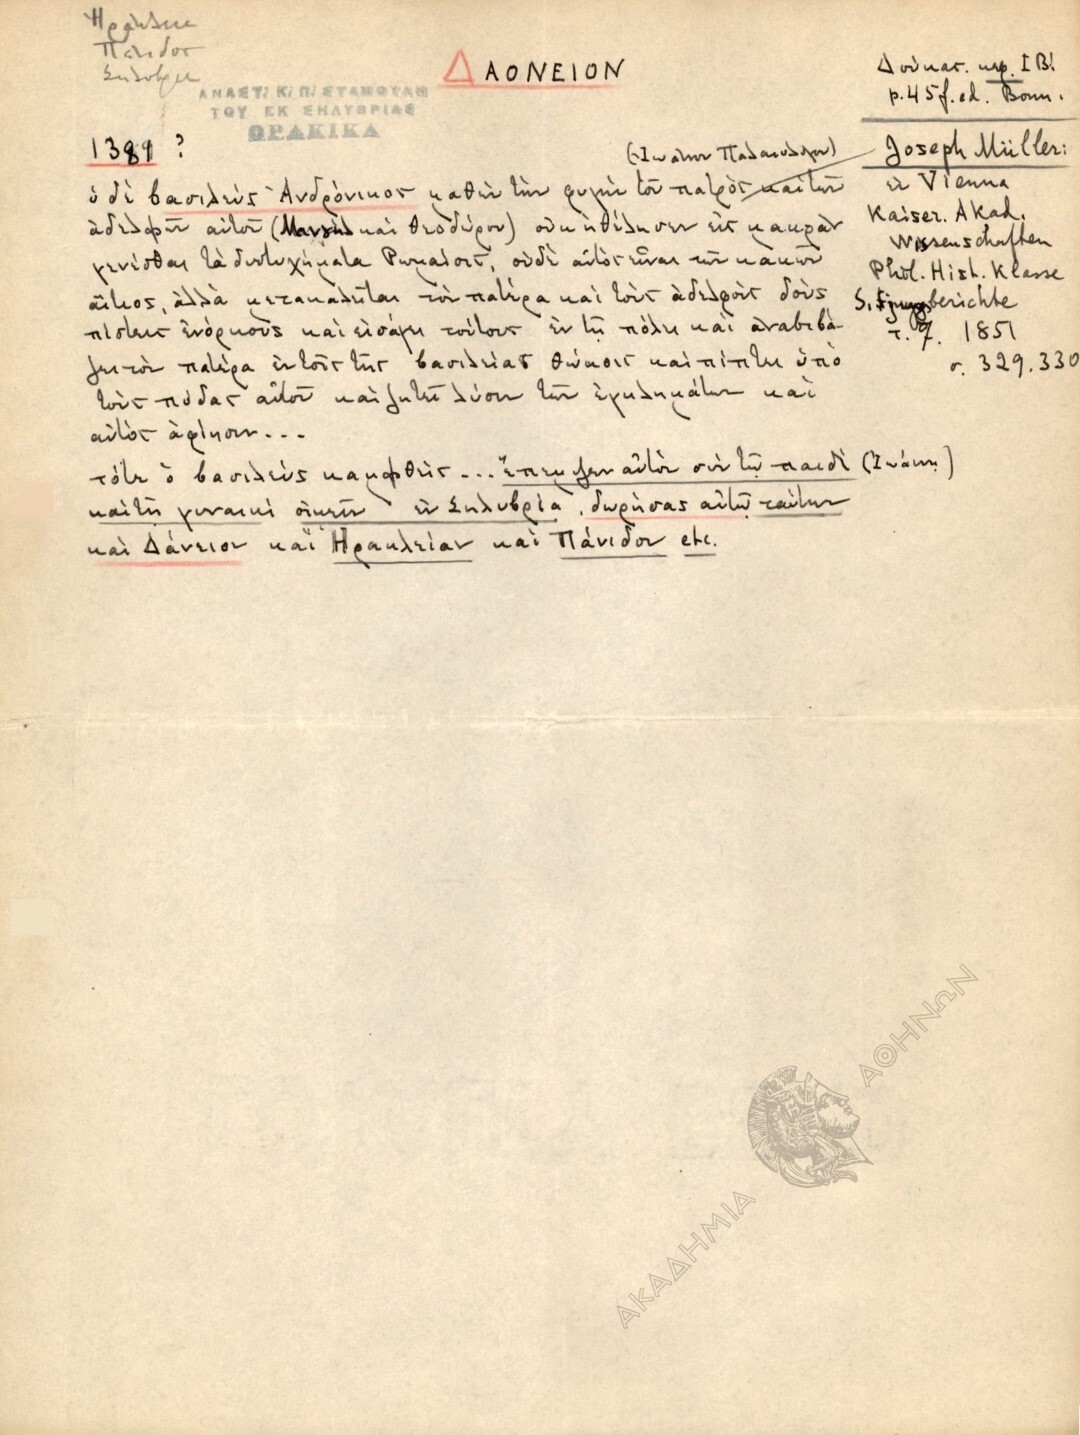 Ηράκλεια
Πάνιδος
Σηλυβρία
ΔΑΟΝΕΙΟΝ
ΑΝΑΣΤ. Κ. Π. ΣΤΑΜΟΥΛΗ
ΤΟΥ ΕΚ ΣΗΛΥΒΡΙΑΣ
ΘΡΑΚΙΚΑ
Δούκας. κεφ. ΙΒ!
p. 45 f. ed. Bonn.
1381 ?
(Ἰωάννου Παλαιολόγου)
ὁ δὲ βασιλεὺς Ἀνδρόνικος μαθὼν τὴν φυγὴν τοῦ πατρὸς καὶ τῶν
ἀδελφῶν αὐτοῦ (Μανουὴλ καὶ Θεοδώρου) οὐκ ἠθέλησεν εἰς μακρὰν
γενέσθαι τὰ δυστυχήματα Ρωμαίοις, οὐδὲ αὐτὸς εἶναι τῶν κακῶν
αἴτιος, ἀλλὰ μετακαλεῖται τὸν πατέρα καὶ τοὺς ἀδελφοὺς δοὺς
πίστεις ἐνόρκους καὶ εἰσάγει τούτους ἐν τῇ πόλει καὶ ἀναβιβά-
ζει τὸν πατέρα ἐν τοῖς τῆς βασιλείας θώκοις καὶ πίπτει ὑπὸ
τοὺς πόδας αὐτοῦ καὶ ζητεῖ λύσιν τῶν ἐγκλημάτων καὶ
αὐτὸς ἀφίησιν...
τότε ὁ βασιλεὺς καμφθεὶς... ἔπεμψεν αὐτὸν σὺν τῷ παιδὶ (Ἰωάννῃ)
καὶ τῇ γυναικὶ οἰκεῖν ἐν Σηλυβρίᾳ, δωρήσας αὐτῷ ταύτην
καὶ Δάνειον καὶ Ἡρακλείαν καὶ Πάνιδον etc.
Joseph Müller:
ἐν Vienna
Kaiser. Akad.
Wissenschaften
Phil. Hist. Klasse
Sitzungsberichte
τ. 7. 1851
σ. 329.330
ΑΚΑΔΗΜΙΑ ΑΘΗΝΩΝ